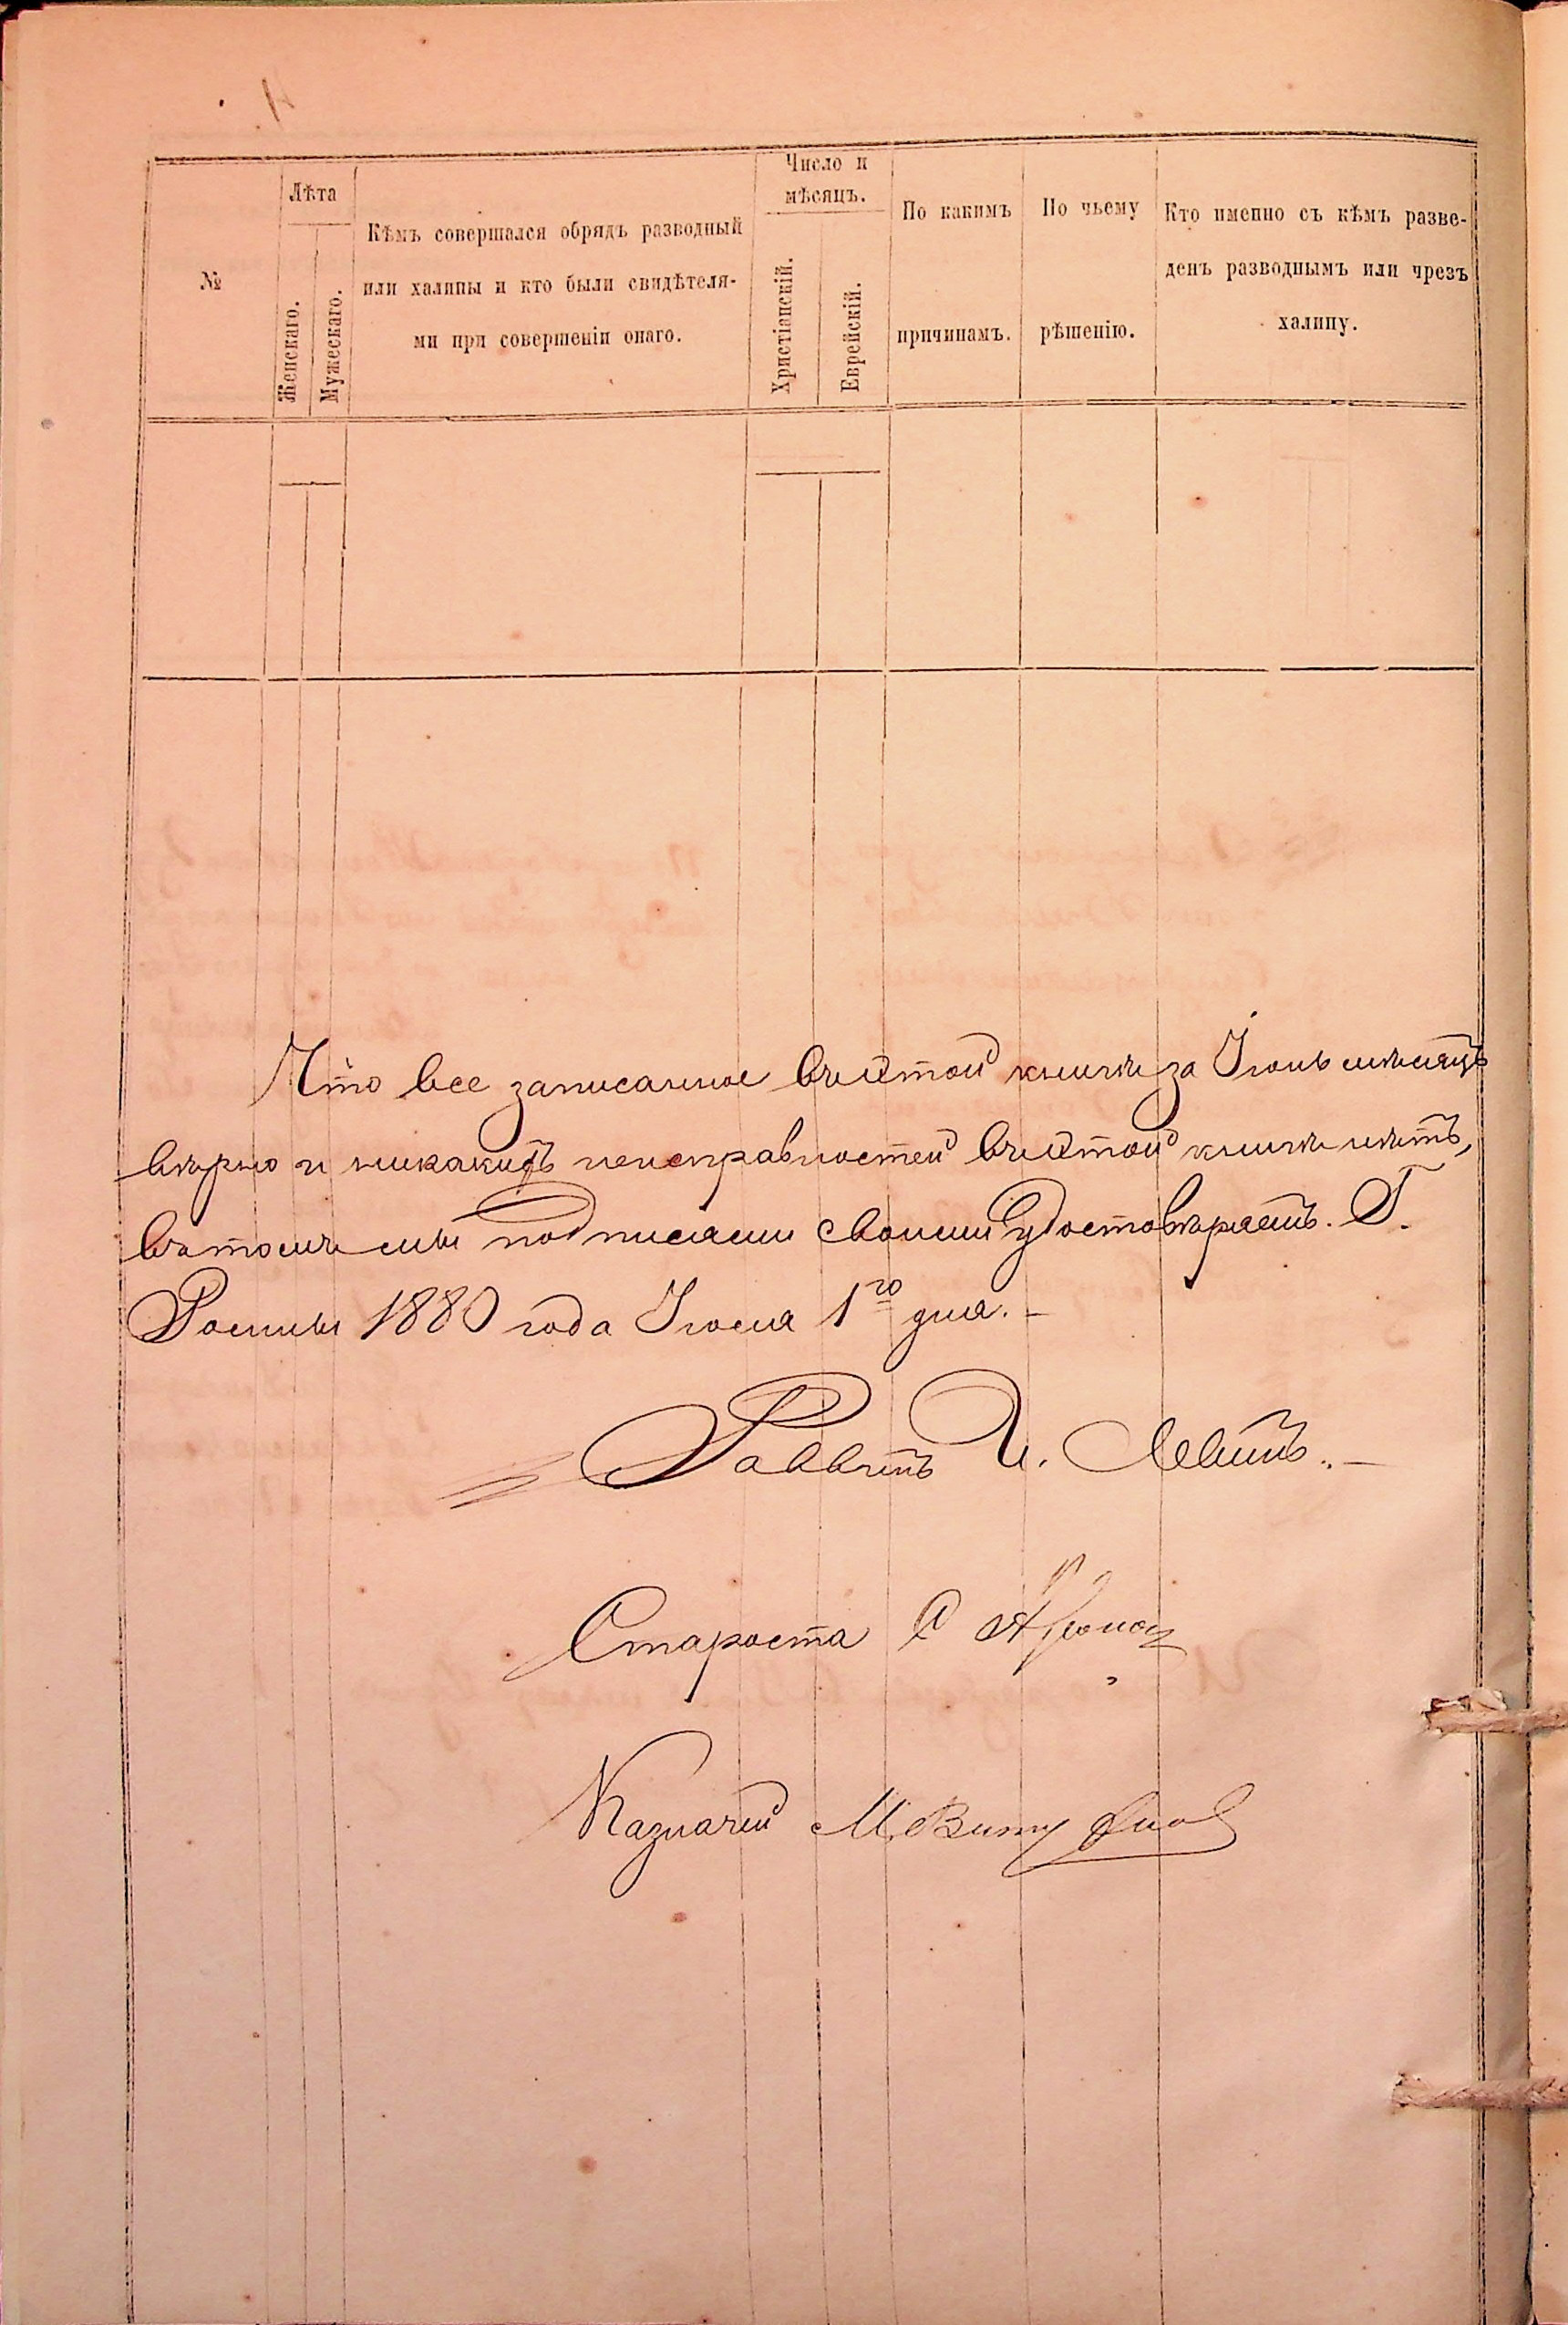 №
Лѣта
Женскаго.
Мужескаго.
Кѣмъ совершался обрядъ разводный
или халицы и кто были свидѣтеля-
ми при совершеніи онаго.
Число и
мѣсяцъ.
Христіанскій.
Еврейскій.
По какимъ
причинамъ.
По чьему
рѣшенію.
Кто именно съ кѣмъ разве-
денъ разводнымъ или чрезъ
халицу.
Что все записанное въ этой книгѣ за мѣсяцъ
вѣрно и никакихъ неисправностей въ этой книгѣ нѣтъ,
въ томъ мы подписями своими удостовѣряемъ. Г.
1880 года 1го дня. –
Раввинъ И. Левинъ. –
Староста
Казначей М.